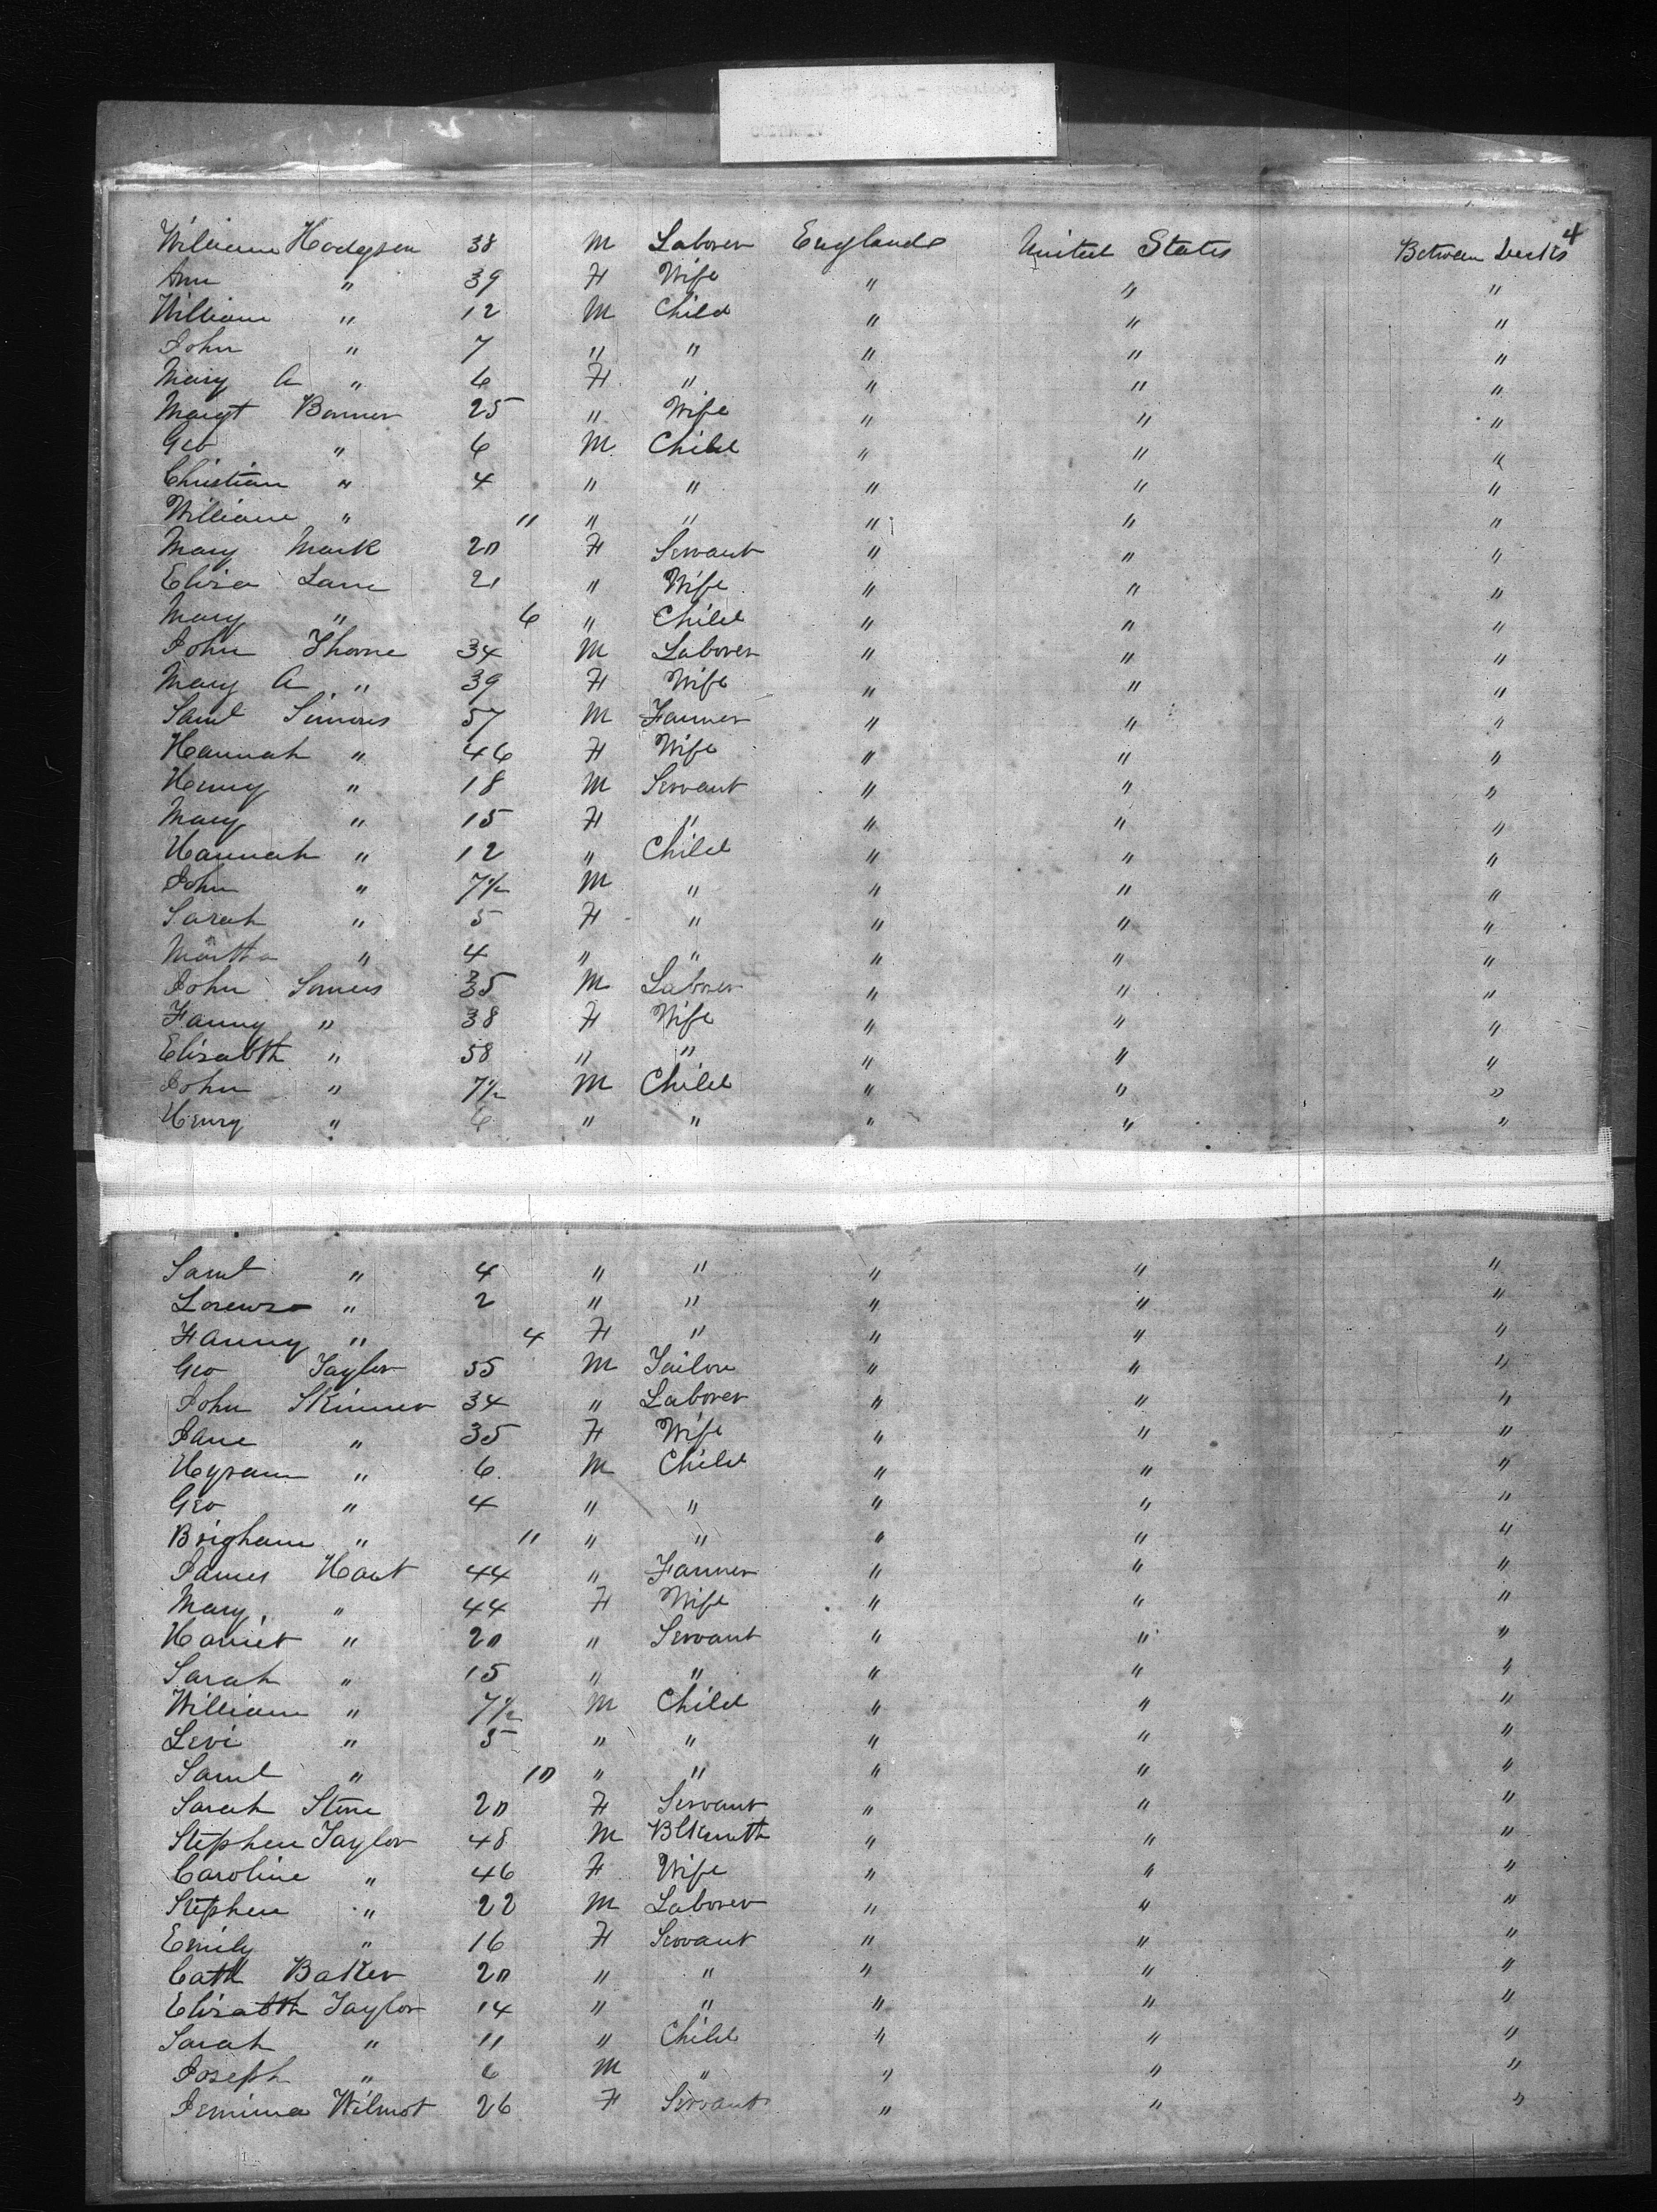 4
William Hodgson 38 M Laborer England United States Between Decks
Ann " 39 F Wife " " "
William " 12 M Child " " "
John " 7 " " " " "
Mary A " 6 F " " " "
Margt Bonner 25 " Wife " " "
Geo " 6 M Child " " "
Christian " 4 " " " " "
William " 11 " " " " "
Mary Mark 20 F Servant " " "
Eliza Lane 21 " Wife " " "
Mary " 6 " Child " " "
John Thorne 34 M Laborer " " "
Mary A " 39 F Wife " " "
Saml Simons 57 M Farmer " " "
Hannah " 46 F Wife " " "
Henry " 18 M Servant " " "
Mary " 15 F " " " "
Hannah " 12 " Child " " "
John " 7½ M " " " "
Sarah " 5 F " " " "
Martha " 4 " " " " "
John Somers 35 M Laborer " " "
Fanny " 38 F Wife " " "
Elizabth " 58 " " " " "
John " 7½ M Child " " "
Henry " 6 " " " " "
Saml " 4 " " " " "
Lorenzo " 2 " " " " "
Fanny " 4 F " " " "
Geo Taylor 55 M Tailor " " "
John Skinner 34 " Laborer " " "
Jane " 35 F Wife " " "
Hyram " 6 M Child " " "
Geo " 4 " " " " "
Brigham " 11 " " " " "
James Hart 44 " Farmer " " "
Mary " 44 F Wife " " "
Harriet " 20 " Servant " " "
Sarah " 15 " " " " "
William " 7½ M Child " " "
Levi " 5 " " " " "
Saml " 10 " " " " "
Sarah Stone 20 F Servant " " "
Stephen Taylor 48 M Blksmith " " "
Caroline " 46 F Wife " " "
Stephen " 22 M Laborer " " "
Emily " 16 F Servant " " "
Cath Baker 20 " " " " "
Elizabth Taylor 14 " " " " "
Sarah " 11 " Child " " "
Joseph " 6 M " " " "
Jemima Wilmot 26 F Servant " " "